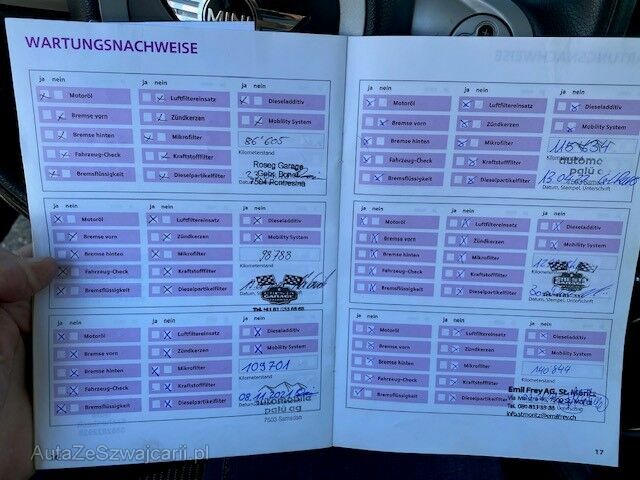 MINI
WARTUNGSNACHWEISE
ja nein
Motoröl
Bremse vorn
Bremse hinten
Fahrzeug-Check
Bremsflüssigkeit
ja nein
Luftfiltereinsatz
Zündkerzen
Mikrofilter
Kraftstofffilter
Dieselpartikelfilter
ja nein
Dieseladditiv
Mobility System
86'605
Kilometerstand
Roseg Garage
Gebr. Bonol
7504 Pontresina
ja nein
Motoröl
Bremse vorn
Bremse hinten
Fahrzeug-Check
Bremsflüssigkeit
ja nein
Luftfiltereinsatz
Zündkerzen
Mikrofilter
Kraftstofffilter
Dieselpartikelfilter
Dieseladditiv
Mobility System
98788
Kilometerstand
GARAGE
ja nein
Motoröl
Bremse vorn
Bremse hinten
Fahrzeug-Check
Bremsflüssigkeit
ja nein
Luftfiltereinsatz
Zündkerzen
Mikrofilter
Kraftstofffilter
Dieselpartikelfilter
Dieseladditiv
Mobility System
109701
Kilometerstand
08.11.2021
automobile
palü ag
7503 Samedan
ja nein
Motoröl
Bremse vorn
Bremse hinten
Fahrzeug-Check
Bremsflüssigkeit
ja nein
Luftfiltereinsatz
Zündkerzen
Mikrofilter
Kraftstofffilter
Dieselpartikelfilter
ja nein
Dieseladditiv
Mobility System
automo
palü
Datum, Stempel, Unterschrift
ja nein
Motoröl
Bremse vorn
Bremse hinten
Fahrzeug-Check
Bremsflüssigkeit
ja nein
Luftfiltereinsatz
Zündkerzen
Mikrofilter
Kraftstofffilter
Dieselpartikelfilter
ja nein
Dieseladditiv
Mobility System
Kilometerstand
Datum, Stempel, Unterschrift
ja nein
Motoröl
Bremse vorn
Bremse hinten
Fahrzeug-Check
Bremsflüssigkeit
ja nein
Luftfiltereinsatz
Zündkerzen
Mikrofilter
Kraftstofffilter
Dieselpartikelfilter
ja nein
Dieseladditiv
Mobility System
140'844
Kilometerstand
Emil Frey AG, St. Moritz
17
AutaZeSzwajcarii.pl